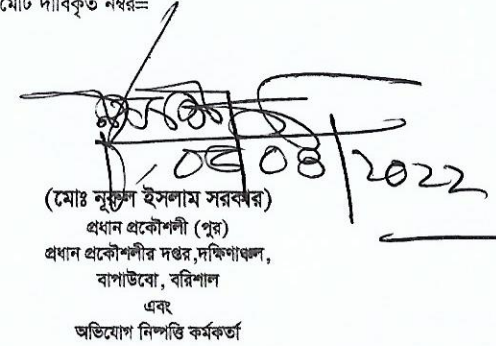 মোট দাবিকৃত নম্বর=
০৫ ০৪ 2022
(মোঃ নূরুল ইসলাম সরকার)
প্রধান প্রকৌশলী (পুর)
প্রধান প্রকৌশলীর দপ্তর,দক্ষিণাঞ্চল,
বাপাউবো, বরিশাল
এবং
অভিযোগ নিষ্পত্তি কর্মকর্তা